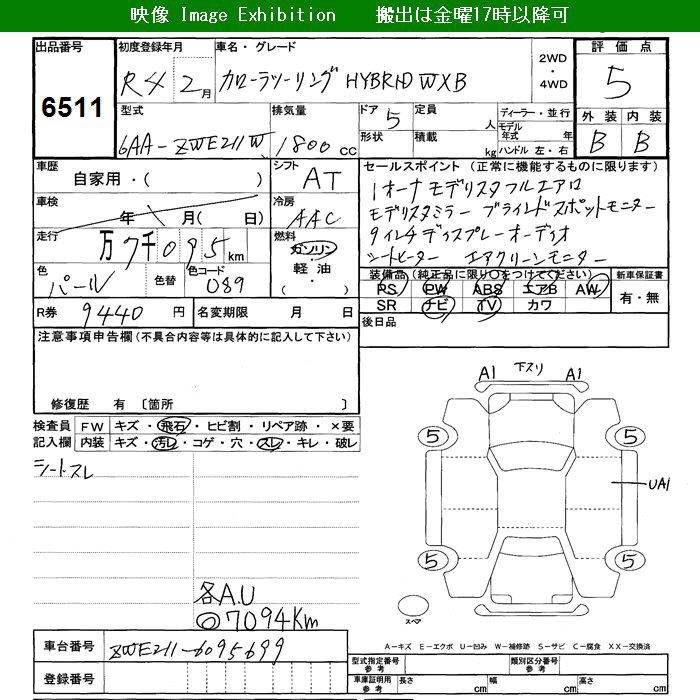 映像 Image Exhibition 搬出は金曜17時以降可
出品番号 6511
初度登録年月 R4 2月
車名・グレード カローラツーリング HYBRID WXB
2WD・4WD
評価点 5
外装 B 内装 B
型式 6AA-ZWE211W
排気量 1800 cc
ドア 5 形状
定員 人 積載 kg
ディーラー・並行
モデル年式 年
ハンドル 左・右
車歴 自家用・( )
シフト AT
車検 年 月( 日)
冷房 AAC
走行 万7千095km
燃料 ガソリン・軽油・
色 パール 色替 色コード 089
R券 9440 円 名変期限 月 日
セールスポイント (正常に機能するものに限ります)
1オーナ モデリスタフルエアロ
モデリスタミラー ブラインドスポットモニター
9インチディスプレーオーディオ
シートヒーター エアクリーンモニター
装備品(純正品に限り○をつけてください) 新車保証書
PS PW ABS エアB AW 有・無
SR ナビ TV カワ
後日品
注意事項申告欄(不具合内容等は具体的に記入して下さい)
修復歴 有 〔箇所 〕
検査員記入欄
FW キズ・飛石・ヒビ割・リペア跡・×要
内装 キズ・汚レ・コゲ・穴・スレ・キレ・破レ
シートスレ
各A.U
◎7094Km
A1 下スリ A1
5 5
UA1
5 5
スペア
A-キズ E-エクボ U-凹み W-補修跡 S-サビ C-腐食 XX-交換済
車台番号 ZWE211-6095699
登録番号
型式指定番号 参考 類別区分番号 参考
車庫証明用 参考 長さ cm 幅 cm 高さ cm